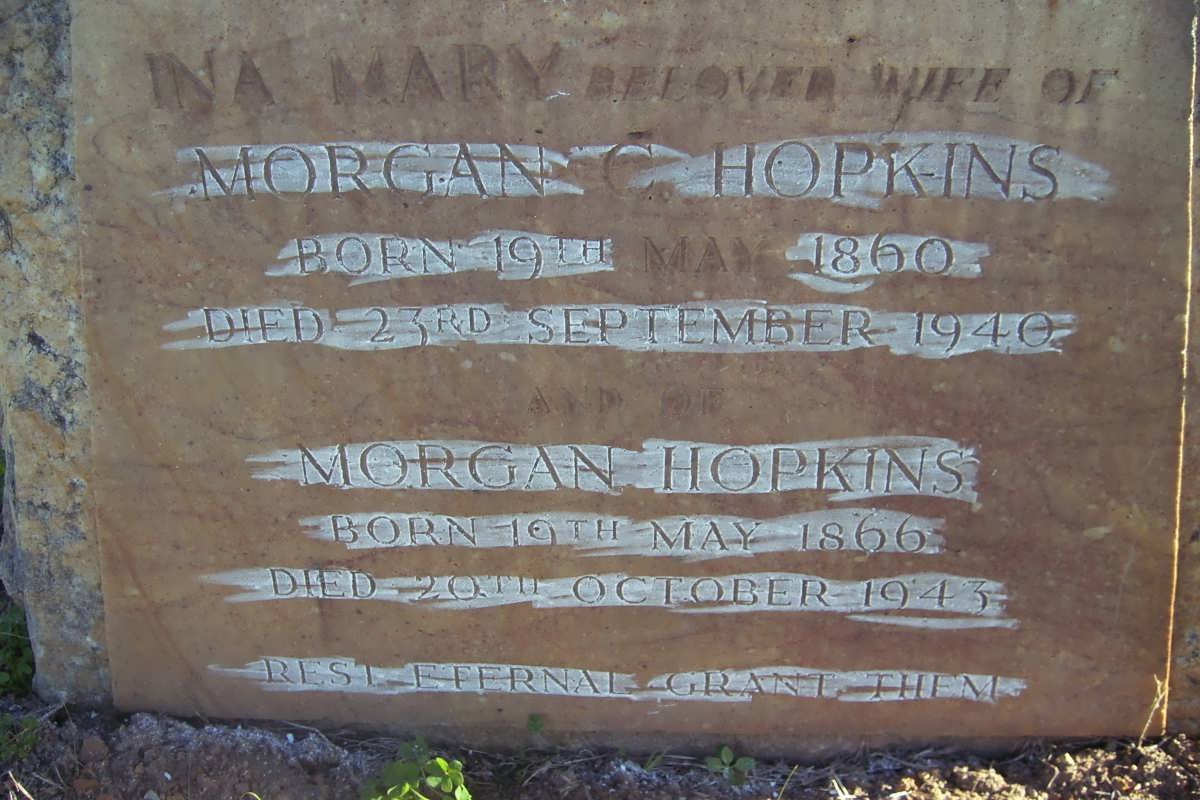 INA MARY BELOVED WIFE OF
MORGAN C HOPKINS
BORN 19TH MAY 1860
DIED 23RD SEPTEMBER 1940
AND OF
MORGAN HOPKINS
BORN 19TH MAY 1866
DIED 20TH OCTOBER 1943
REST ETERNAL GRANT THEM